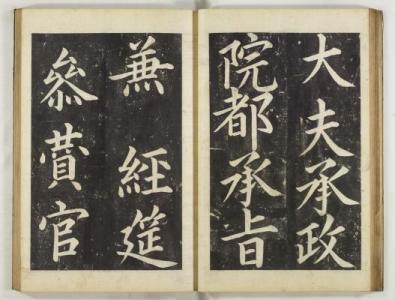 大夫承政
院都承旨
兼經筵
叅賛官